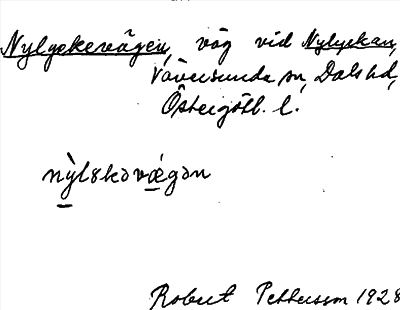 Nylyckevägen, väg vid Nylyckan,
Väversunda sn, Dals hd,
Östergötl. l.
nỳlskəvǽgən
Robert Pettersson 1928